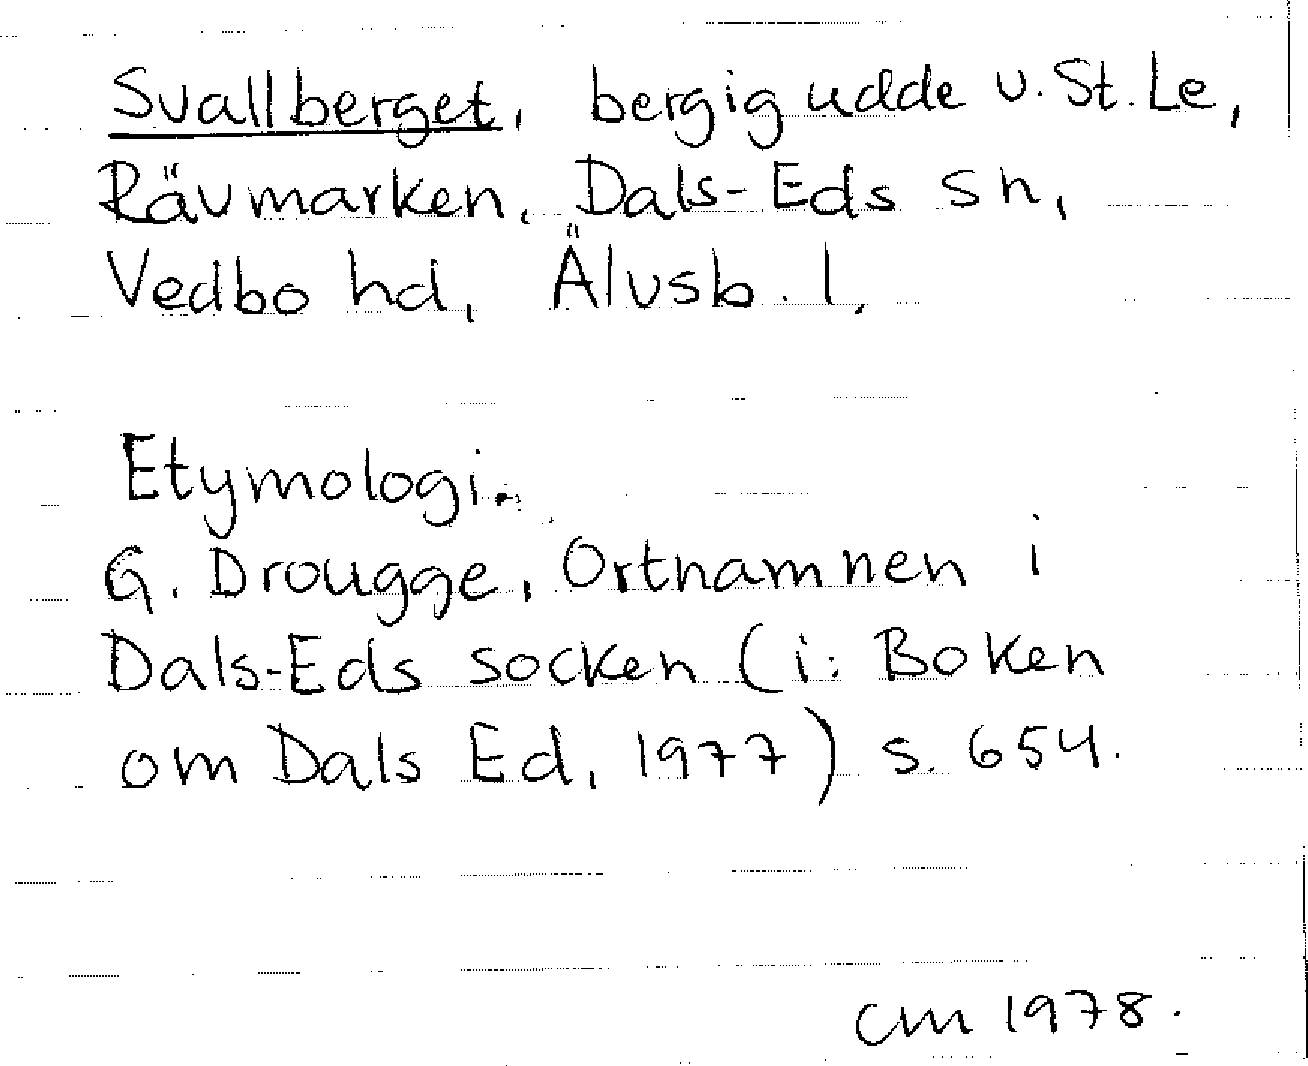 Svallberget, bergig udde v. St. Le,
Rävmarken, Dals-Eds sn,
Vedbo hd, Älvsb. l.
Etymologi.
G. Drougge, Ortnamnen i
Dals-Eds socken (i: Boken
om Dals Ed, 1977) s. 654.
CM 1978.